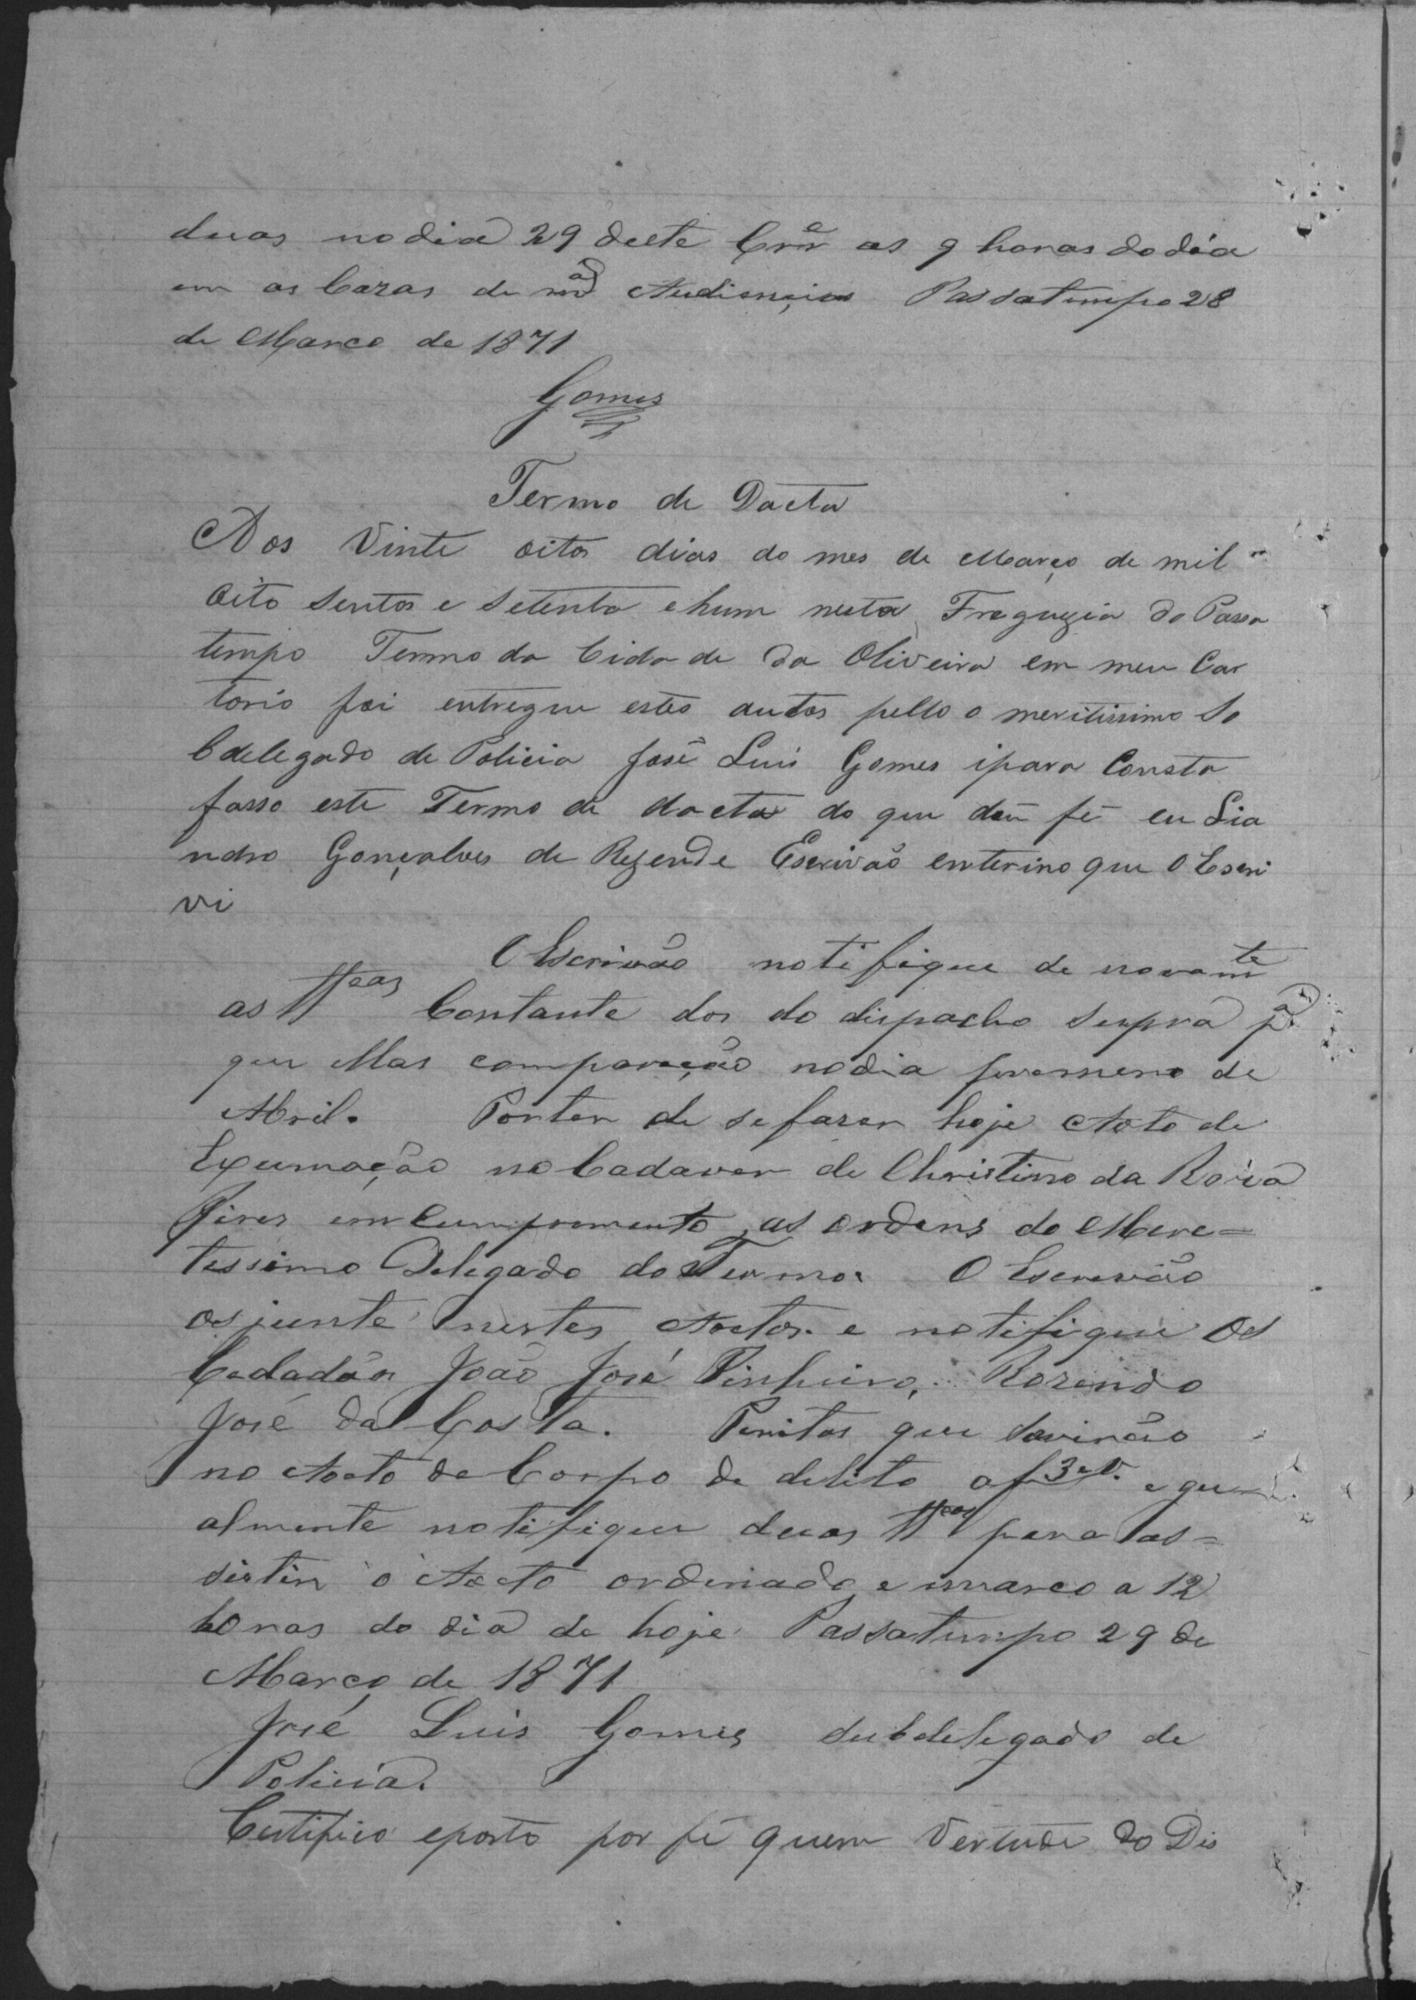 duas no dia 29 deste Crre as 9 horas do dia
em as Cazas de mas Audiencias Passatempo 28
de Março de 1871
Gomes
Termo de Dacta
Aos Vinte oito dias do mes de Março de mil
Oito Sentos e Setenta e hum nesta Freguezia do Passa
tempo Termo da Cidade da Oliveira em meu Car
torio foi entregue estes autos pello o meritissimo So
bdelegado de Policia José Luis Gomes ipara Consta
fasso este Termo de dacta do que dou fé eu Lia
ndro Gonçalves de Rezende Escrivão enterino que o Escri
vi
O Escrivão notifique de novamte
as tteas Contante dos do dispacho supra pa
que Mas compareção no dia de
Abril. Por ter de se fazer hoje Aoto de
Exumação no Cadaver de Christino da Roxa
Pires em Cumpromento as ordens do Mere=
tessimo Delegado do Termo. O Escrevão
os junte nestes Aoctos. e notifique Os
Cedadãos João José Pinheiro, Rozendo
José da Costa. Peritos que Savirão
no Aocto de Corpo de delito a f 3 e v. e gual
almente notifique duas tteas para as=
sistir o Aocto ordenado e marco a 12
horas do dia de hoje Passatempo 29 de
Março de 1871
José Luis Gomes subdelegado de
Policia.
Certifico e porto por fé quem Vertude do Dis